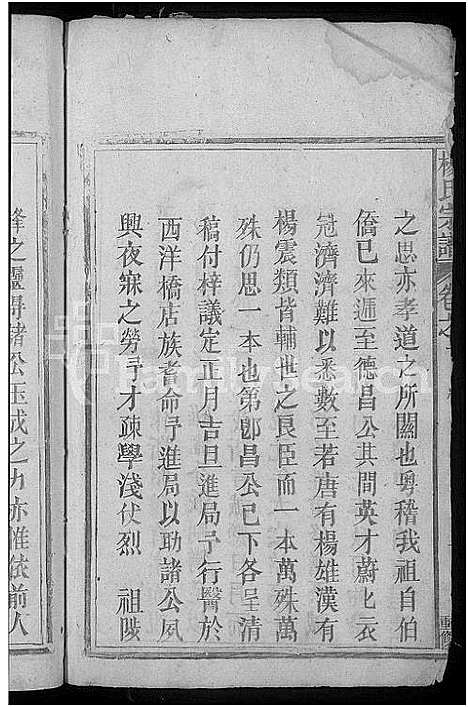 楊氏宗譜 卷之
重修
之思亦孝道之所關也粵稽我祖自伯
僑已來遞至德昌公其間英才蔚七衣
冠濟濟難以悉數至若唐有楊雄漢有
楊震類皆輔世之良臣而一本萬殊萬
殊仍思一本也第卽昌公已下各呈清
稿付梓議定正月吉旦進局予行醫於
西洋橋店族耆命予進局以助諸公夙
興夜寐之勞予才疎學淺伏烈　祖陟
降之靈得諸公玉成之力亦惟依前人
FamilySearch